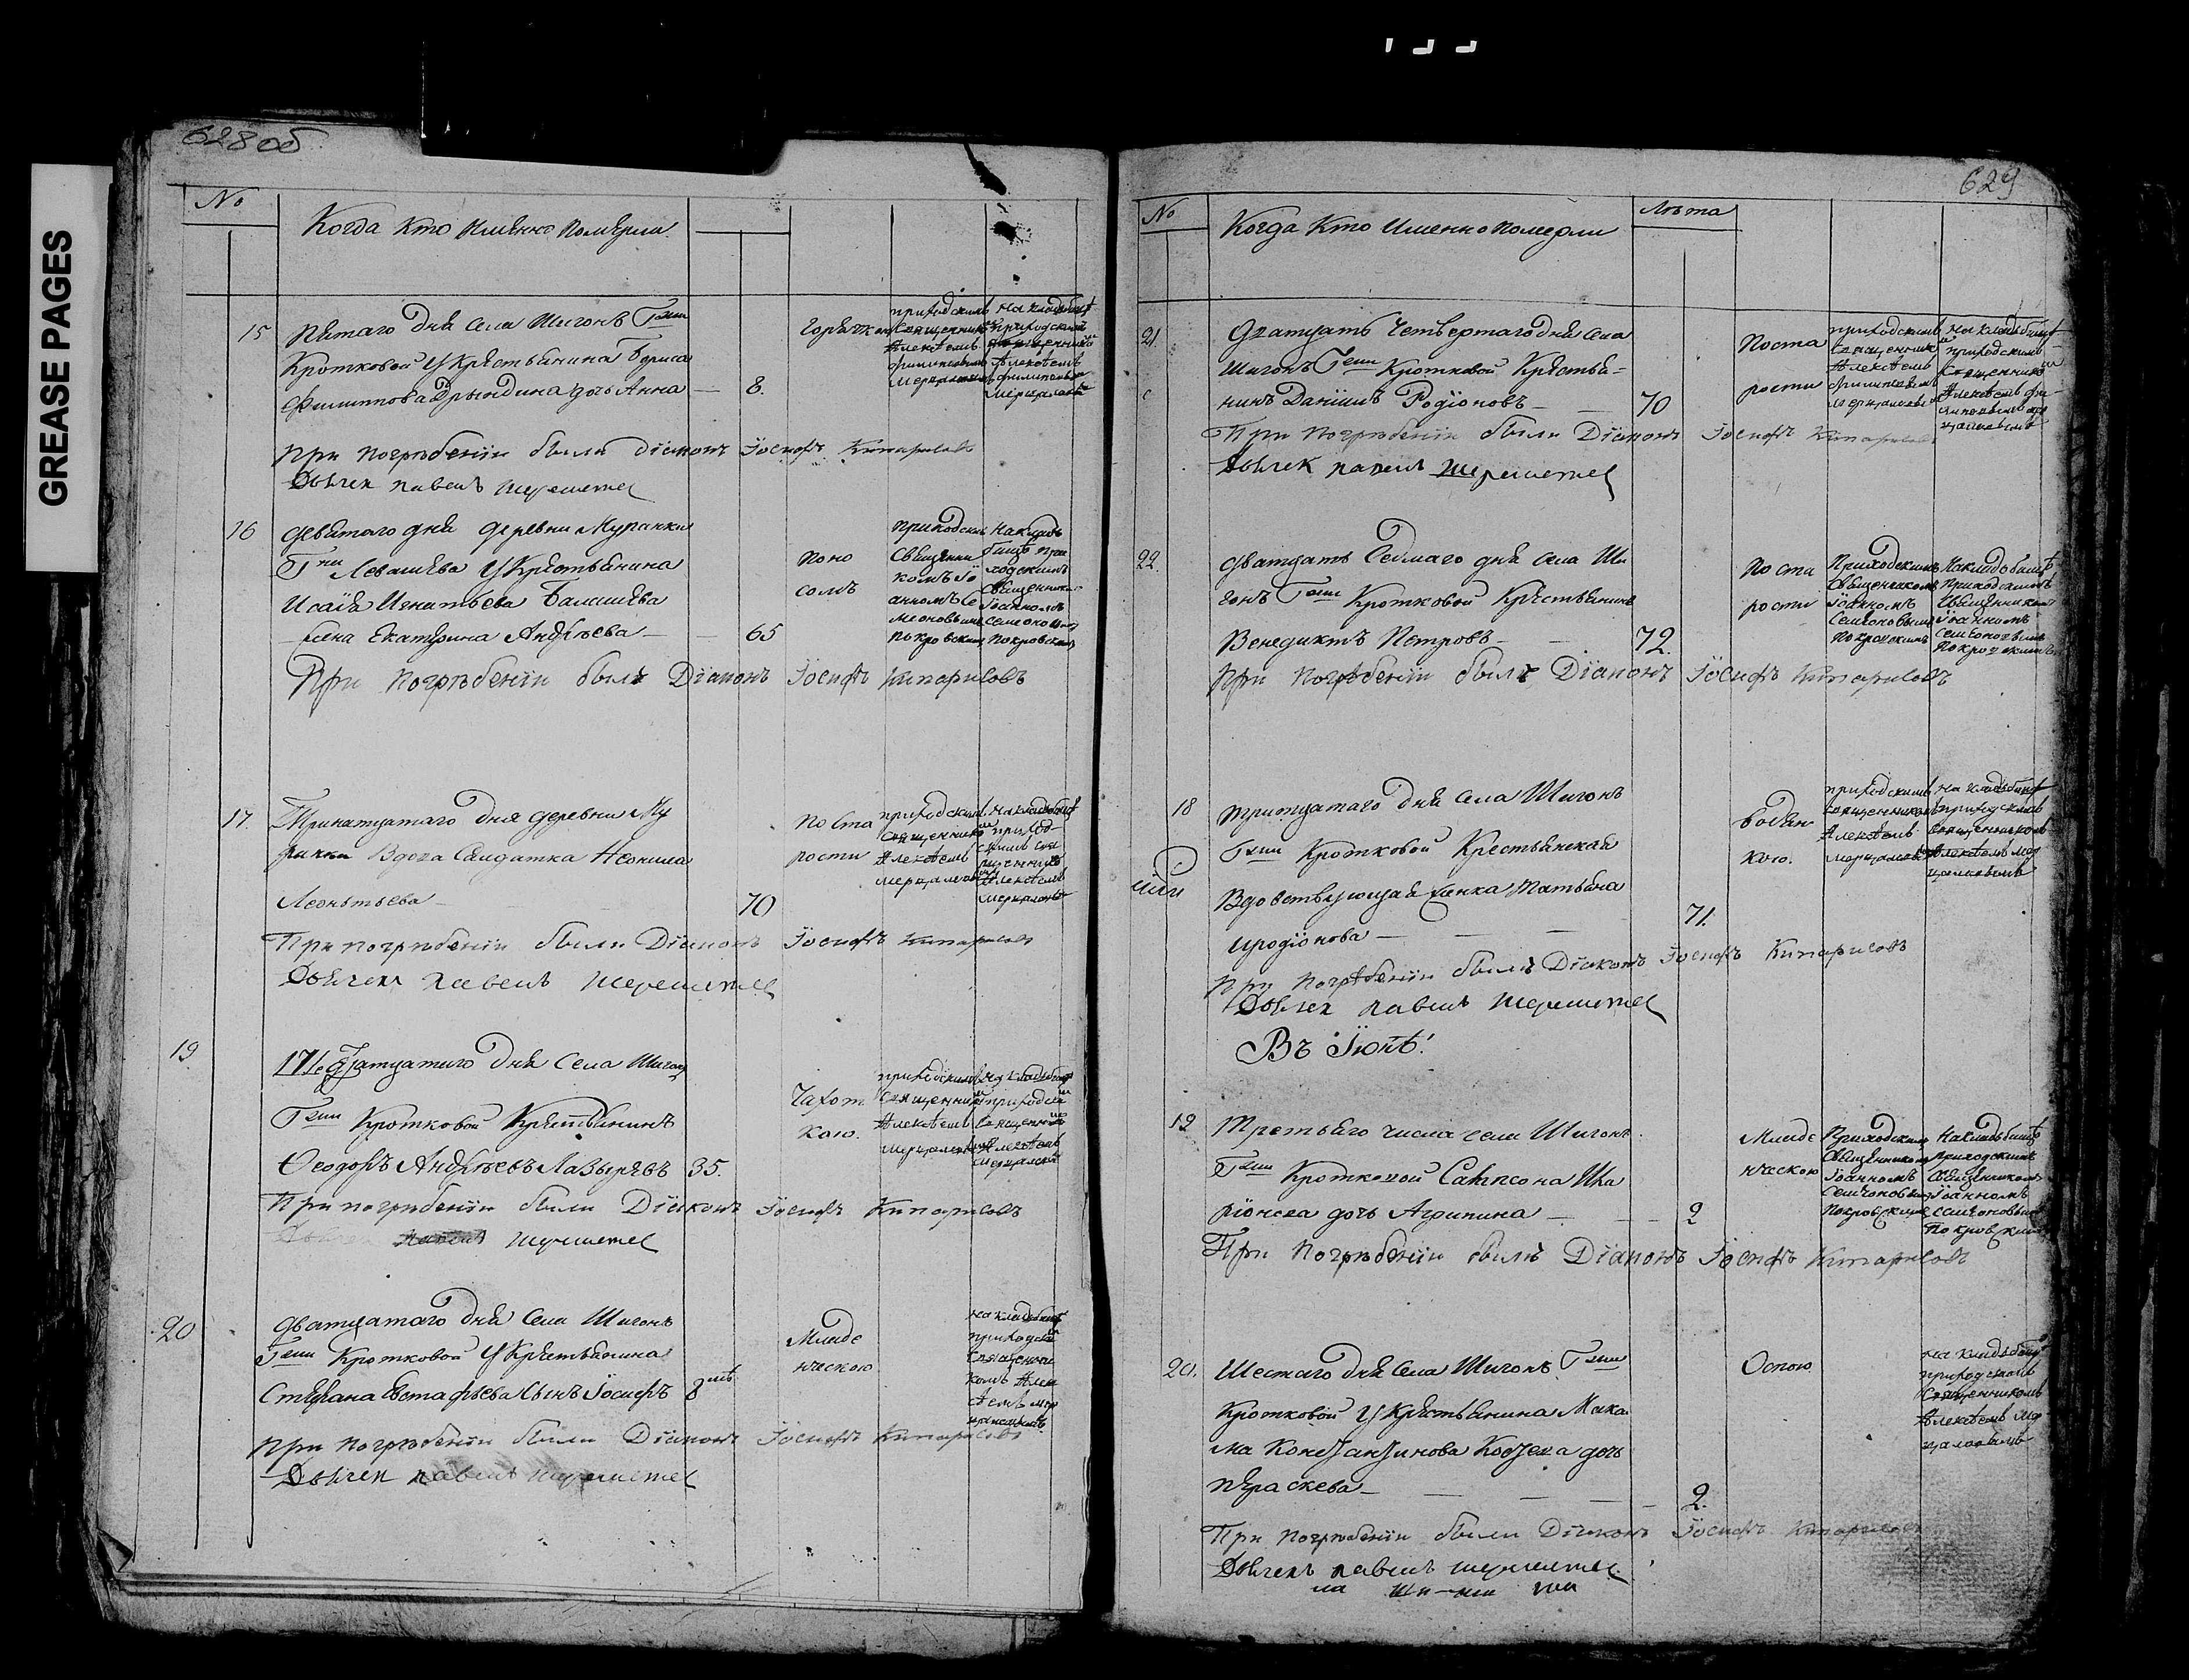 GREASE PAGES
628об
№
Когда Кто Имянно Померли
15
Пятаго дня села Шигонъ Гжи
Кротковой У Крестьянина Бориса
Филиппова дочь Анна — 8.
Горячкою
приходскимъ
Священникомъ
Алексѣемъ
Филиповымъ
Мерцаловымъ
на кладбищѣ
приходскимъ
Священникомъ
Алексѣемъ
Филиповымъ
Мерцаловымъ
При погрѣбеніи были Діаконъ Іосифъ Кипарисовъ
Дьячек павелъ
16
девятаго дня деревни Муранки
Гни Левашева У Крестьянина
Исаія Игнатьева Балашева
жена Екатерина Андрѣева — 65
поно
сомъ
приходским
Священни
комъ Іо
анномъ Се
меоновымъ
покровским
На кладъ
бищѣ при
ходскимъ
Священник
Іоанномъ
Семеоновым
Покровским
При Погрѣбеніи былъ Діаконъ Іосифъ Кипарисовъ
17.
Тринатцатаго дня деревни Му
ранки Вдова Салдатка Неонила
Леонтьева — 70
По Ста
рости
приходским
Священником
Алексѣемъ
Мерцаловым
На кладбищѣ
приход-
скимъ Свя
щенник
Алексѣемъ
Мерцаловым
При погрѣбеніи были Діаконъ Іосифъ Кипарисовъ
Дьячек павелъ
19
17го Дватцатаго дня Села Шигон
Гжи Кротковой Крестьянинъ
Ѳеодоръ Андрѣевъ Лазыревъ 35.
Чахот
кою.
приходскимъ
Священником
Алексѣемъ
Мерцаловым
На кладбищѣ
приходским
Священником
Алексѣемъ
Мерцаловым
При погрѣбеніи были Діаконъ Іосифъ Кипарисовъ
20
дватцатаго дня Села Шигонъ
Гжи Кротковой У Крестьянина
Стефана Евстафьева Сынъ Іосифъ 8
Младе
нческою
на кладбищѣ
приходским
Священни
комъ Алек
сѣемъ Мер
цаловымъ
При погрѣбеніи были Діаконъ Іосифъ Кипарисовъ
Дьячек павелъ
629
№
Когда Кто Именно померли
Лѣта
21.
Дватцать Четвертаго дня Села
Шигонъ Гжи Кротковой Крестья-
нинъ Даніилъ Родіоновъ — 70
По ста
рости
приходским
Священником
Алексѣемъ
Филиповымъ
Мерцаловым
на кладбищѣ
приходскимъ
Священником
Алексѣемъ Фи-
липовымъ Мер
цаловымъ
При погрѣбеніи были Діаконъ Іосифъ Кипарисовъ
Дьячек павелъ
22.
дватцать Седмаго дня Села Ши
гонъ Гжи Кротковой Крестьянинъ
Венедиктъ Петровъ — 72.
По ста
рости
Приходскимъ
Священником
Іоанномъ
Семеоновымъ
Покровскимъ
На кладбищѣ
Приходскимъ
Священником
Іоанномъ
Семеоновымъ
Покровскимъ
При Погрѣбеніи былъ Діаконъ Іосифъ Кипарисовъ
18
тритцатаго дня Села Шигонъ
Гжи Кротковой Крестьянская
Вдовствующая Женка Татьяна
Иродіонова — 71.
Водян
кою.
приходскимъ
Священником
Алексѣемъ
Мерцаловым
На кладбищѣ
приходскимъ
Священником
Алексѣемъ Мер
цаловымъ
При погрѣбеніи были Діаконъ Іосифъ Кипарисовъ
Дьячек павелъ
Въ Іюнѣ.
19
Третьяго числа села Шигонъ
Гжи Кротковой
дочь Агрипина — 2
Младе
нческою
Приходским
Священником
Іоанномъ
Семеоновым
Покровским
На кладбищѣ
приходскимъ
Священником
Іоанномъ
Семеоновым
Покровским
При Погрѣбеніи былъ Діаконъ Іосифъ Кипарисовъ
20.
Шестаго дня Села Шигонъ Гжи
Кротковой У Крестьянина
Константинова дочь
Параскева — 2.
Оспою
на кладбищѣ
приходскимъ
Священникомъ
Алексѣемъ Мер
цаловымъ
При погрѣбеніи были Діаконъ Іосифъ Кипарисовъ
Дьячекъ павелъ